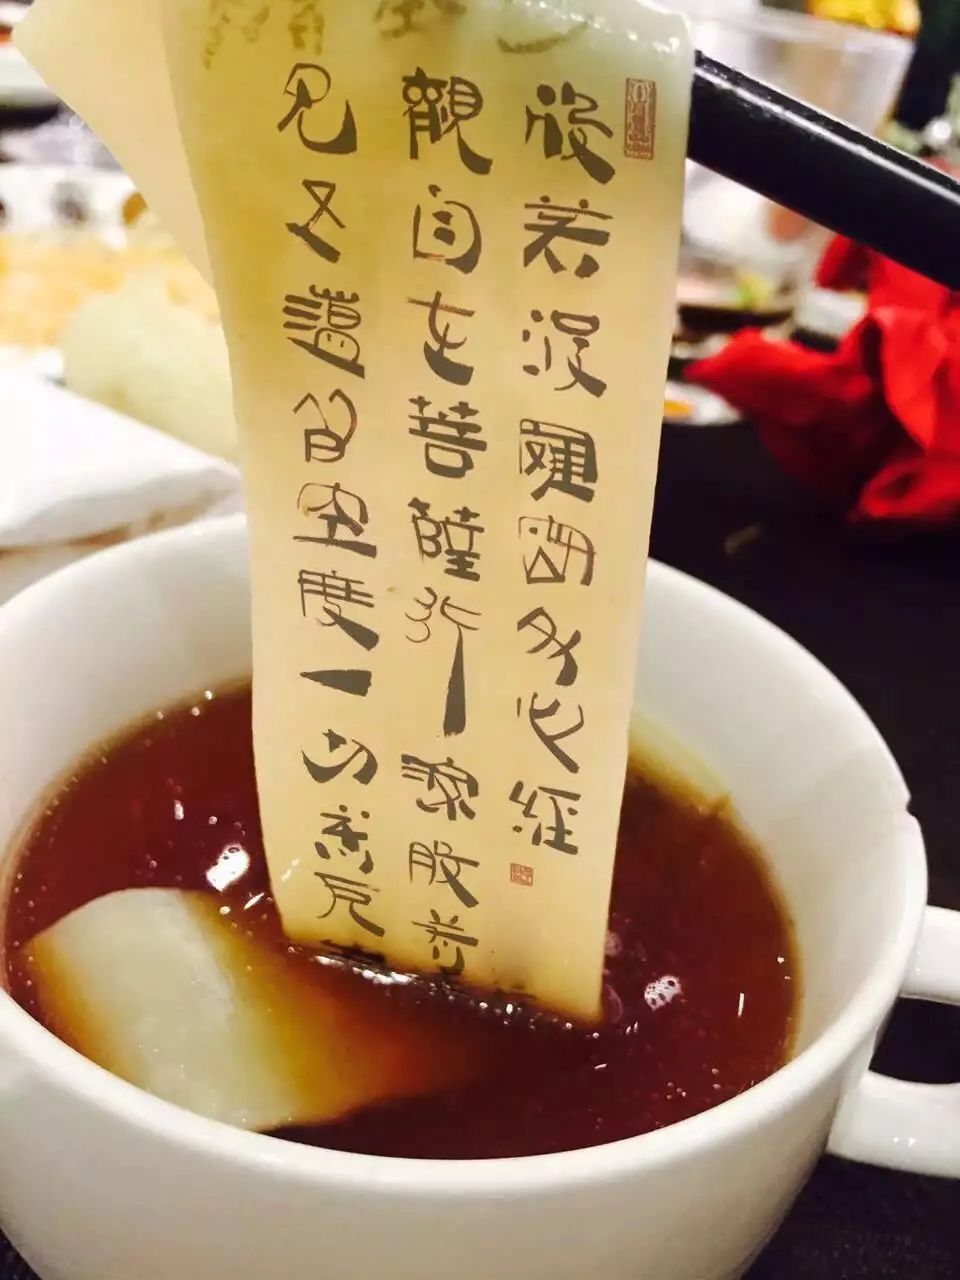 般若波羅蜜多心經
觀自在菩薩行深般若
見五蘊皆空度一切苦厄